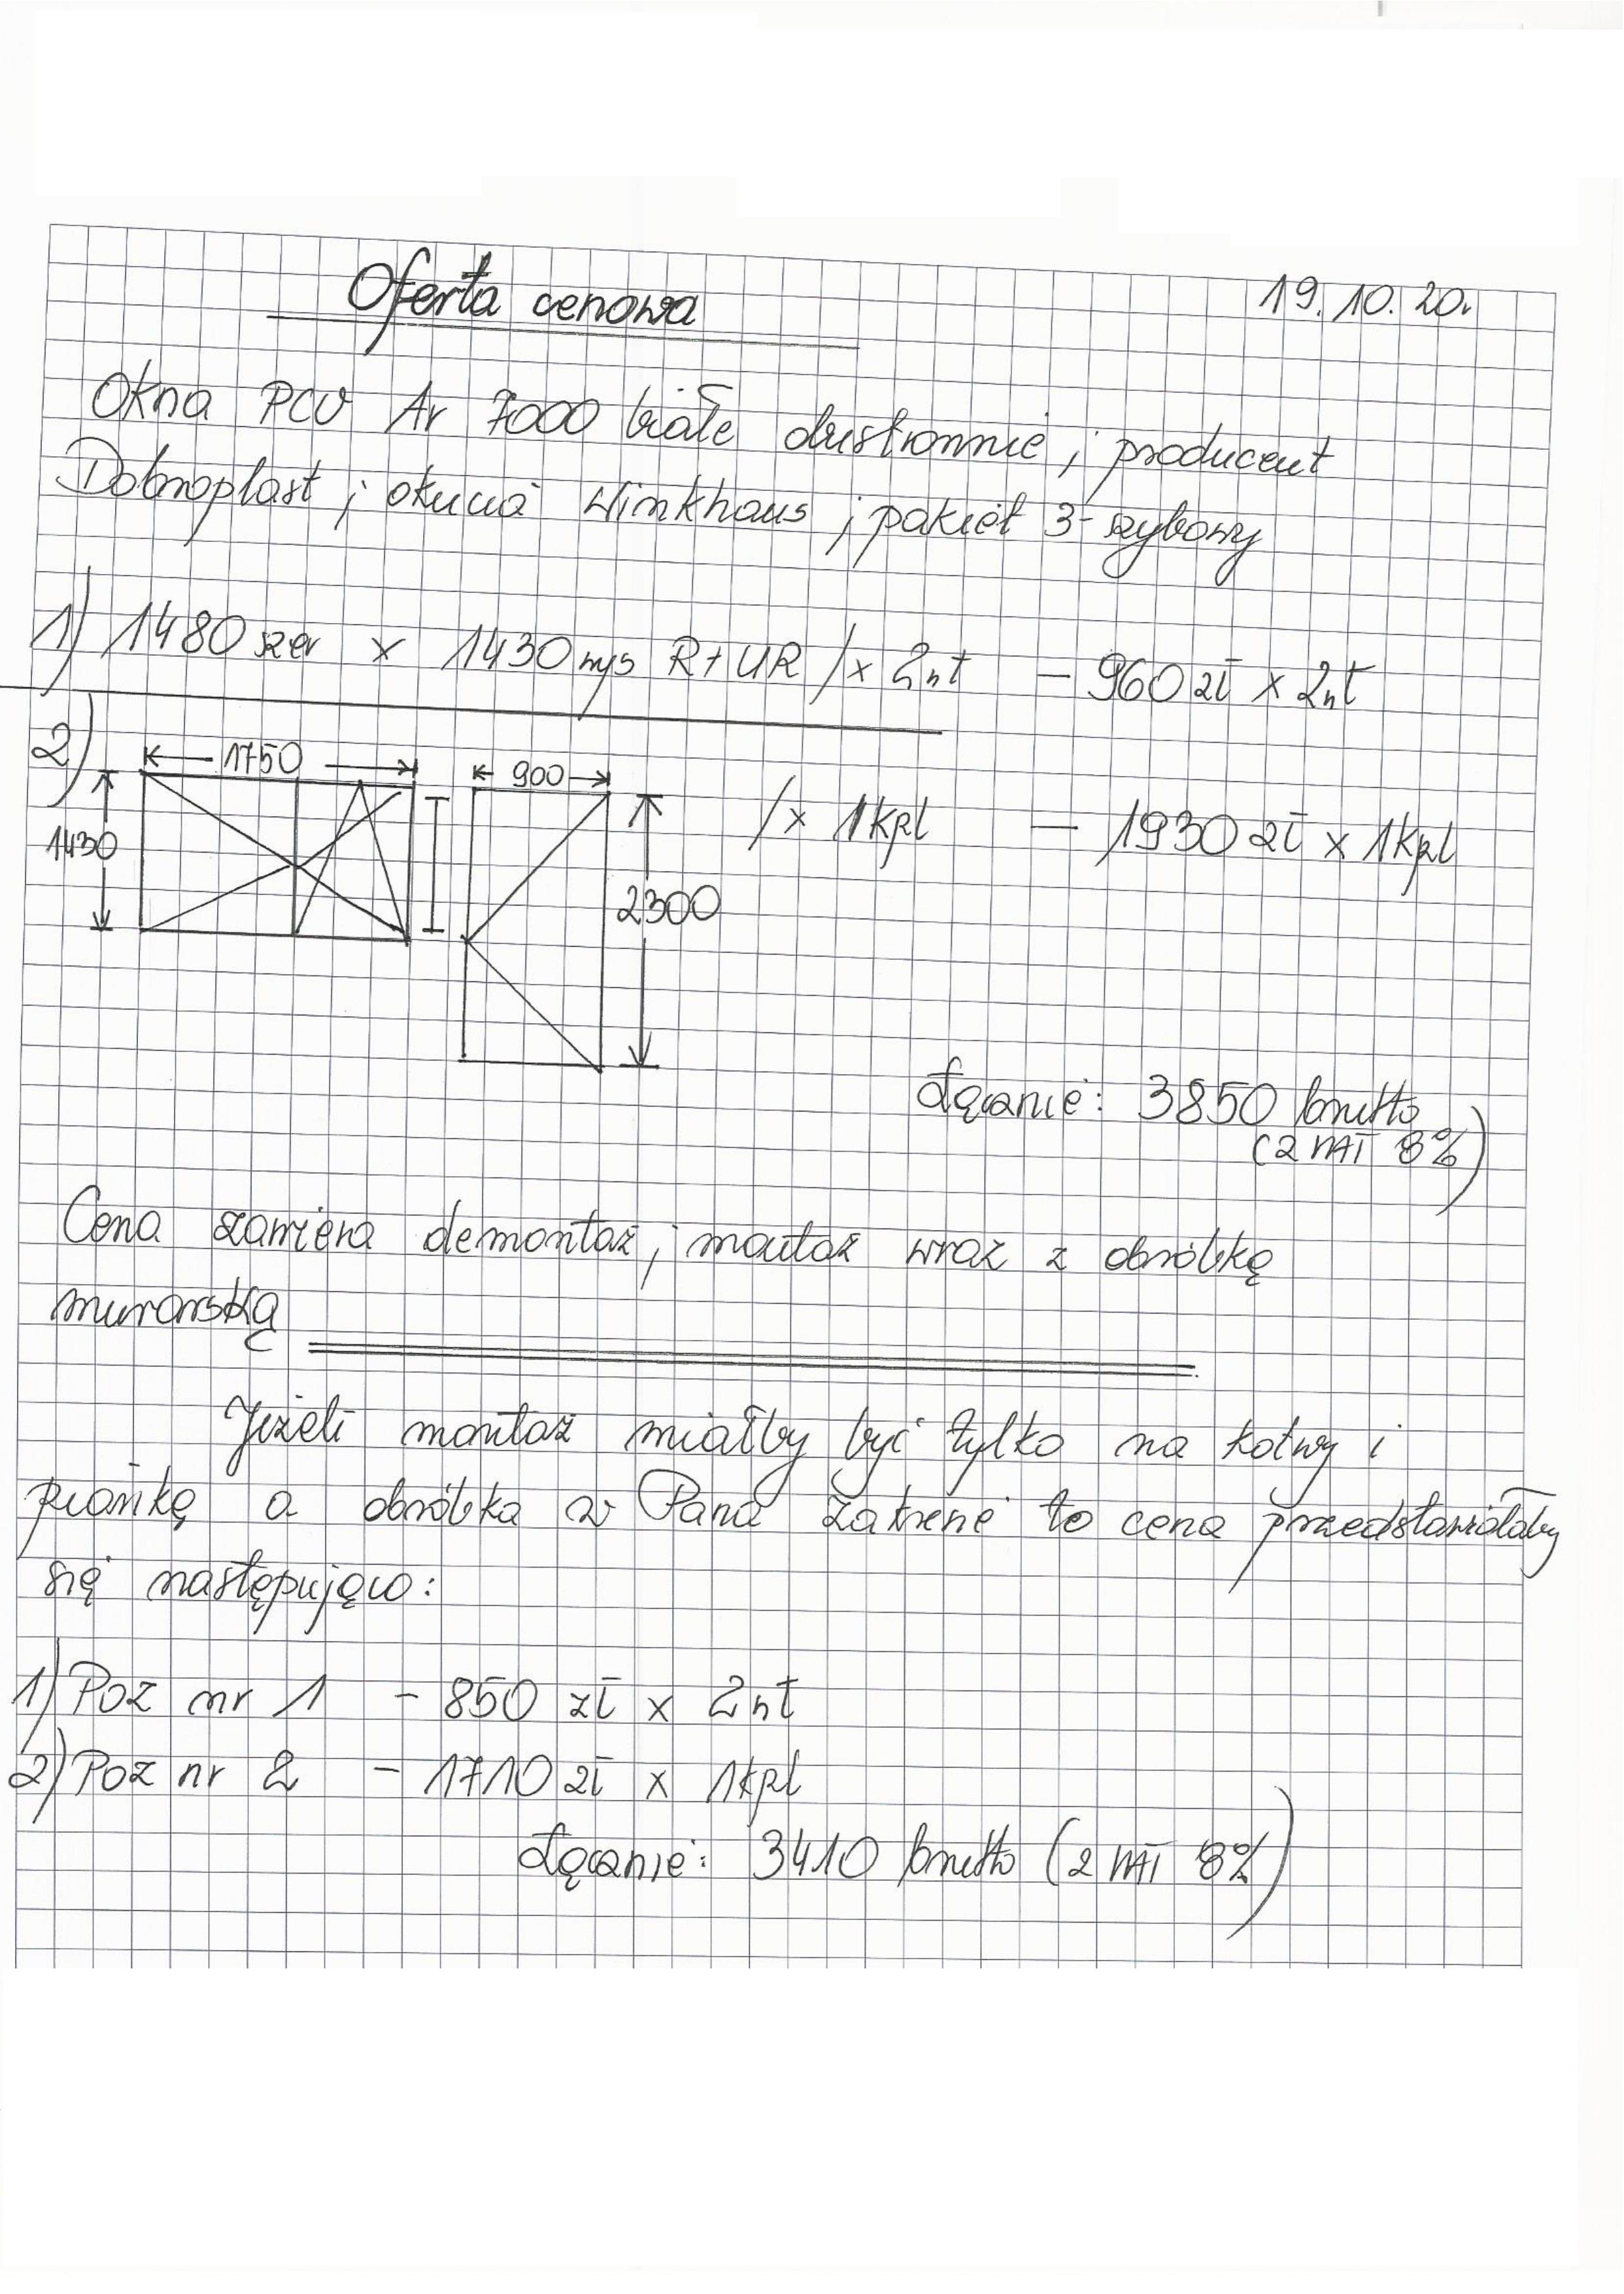 Oferta cenowa
19.10.20r
Okna PCV Ar 7000 białe dwustronnie, producent
Dobroplast, okucia Winkhaus, pakiet 3-szybowy
1) 1480 szer x 1430 wys R+UR /x 2szt – 960 zł x 2szt
2)
1750
900
1430
2300
/x 1kpl – 1930 zł x 1kpl
Łącznie: 3850 brutto
(z VAT 8%)
Cena zawiera demontaż, montaż wraz z obróbką
murarską
Jeżeli montaż miałby być tylko na kotwy i
piankę a obróbka w Pana zakresie to cena przedstawiałaby
się następująco:
1) Poz nr 1 – 850 zł x 2szt
2) Poz nr 2 – 1710 zł x 1kpl
Łącznie: 3410 brutto (z VAT 8%)